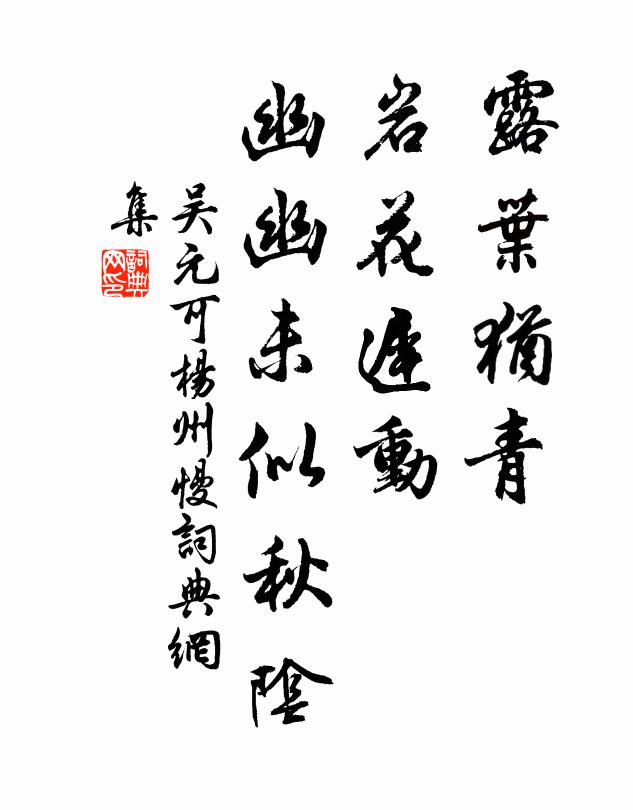 露葉猶青
岩花遲動
幽幽未似秋陰
吴元可楊州慢詞典網
集
詞典
网印